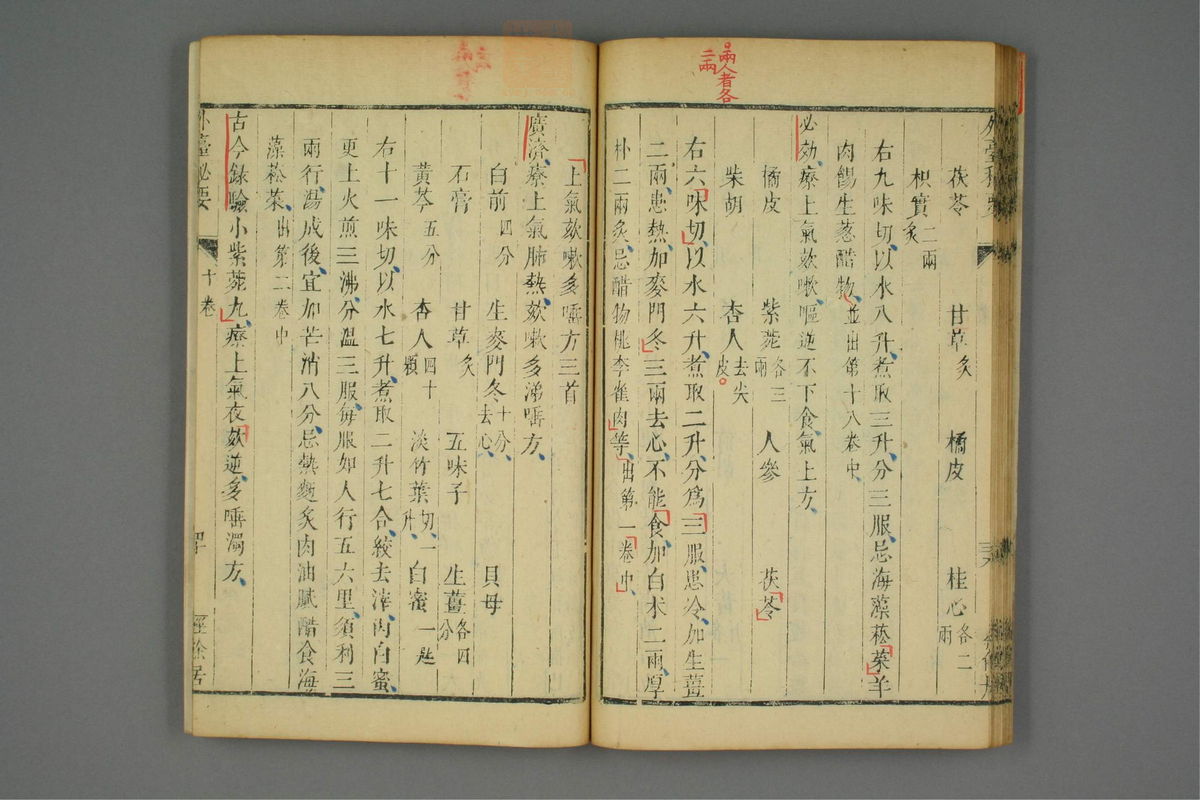 茯苓 甘草炙 橘皮 桂心各二兩
枳實二兩炙
右九味切以水八升煮取三升分三服忌海藻菘菜羊
肉餳生葱酷物並出第十八卷中
必効療上氣欬嗽嘔逆不下食氣上方
橘皮 紫菀各三兩 人參 茯苓
柴胡 杏人去尖皮
右六味切以水六升煮取二升分爲三服患冷加生薑
二兩患熱加麥門冬三兩去心不能食加白朮二兩厚
朴二兩炙忌醋物桃李雀肉等出第一卷中
兩人者各
二兩
上氣欬嗽多唾方三首
廣濟療上氣肺熱欬嗽多涕唾方
白前四分 生麥門冬十分去心 貝母
石膏 甘草炙 五味子 生薑各四分
黃芩五分 杏人四十顆 淡竹葉切一升 白蜜一匙
右十一味切以水七升煮取二升七合絞去滓內白蜜
更上火煎三沸分溫三服每服如人行五六里須利三
兩行湯成後宜加芒消八分忌熱麪炙肉油膩醋食海
藻菘菜出第二卷中
古今錄驗小紫菀丸療上氣夜欬逆多唾濁方
外臺祕要
十卷
經餘居